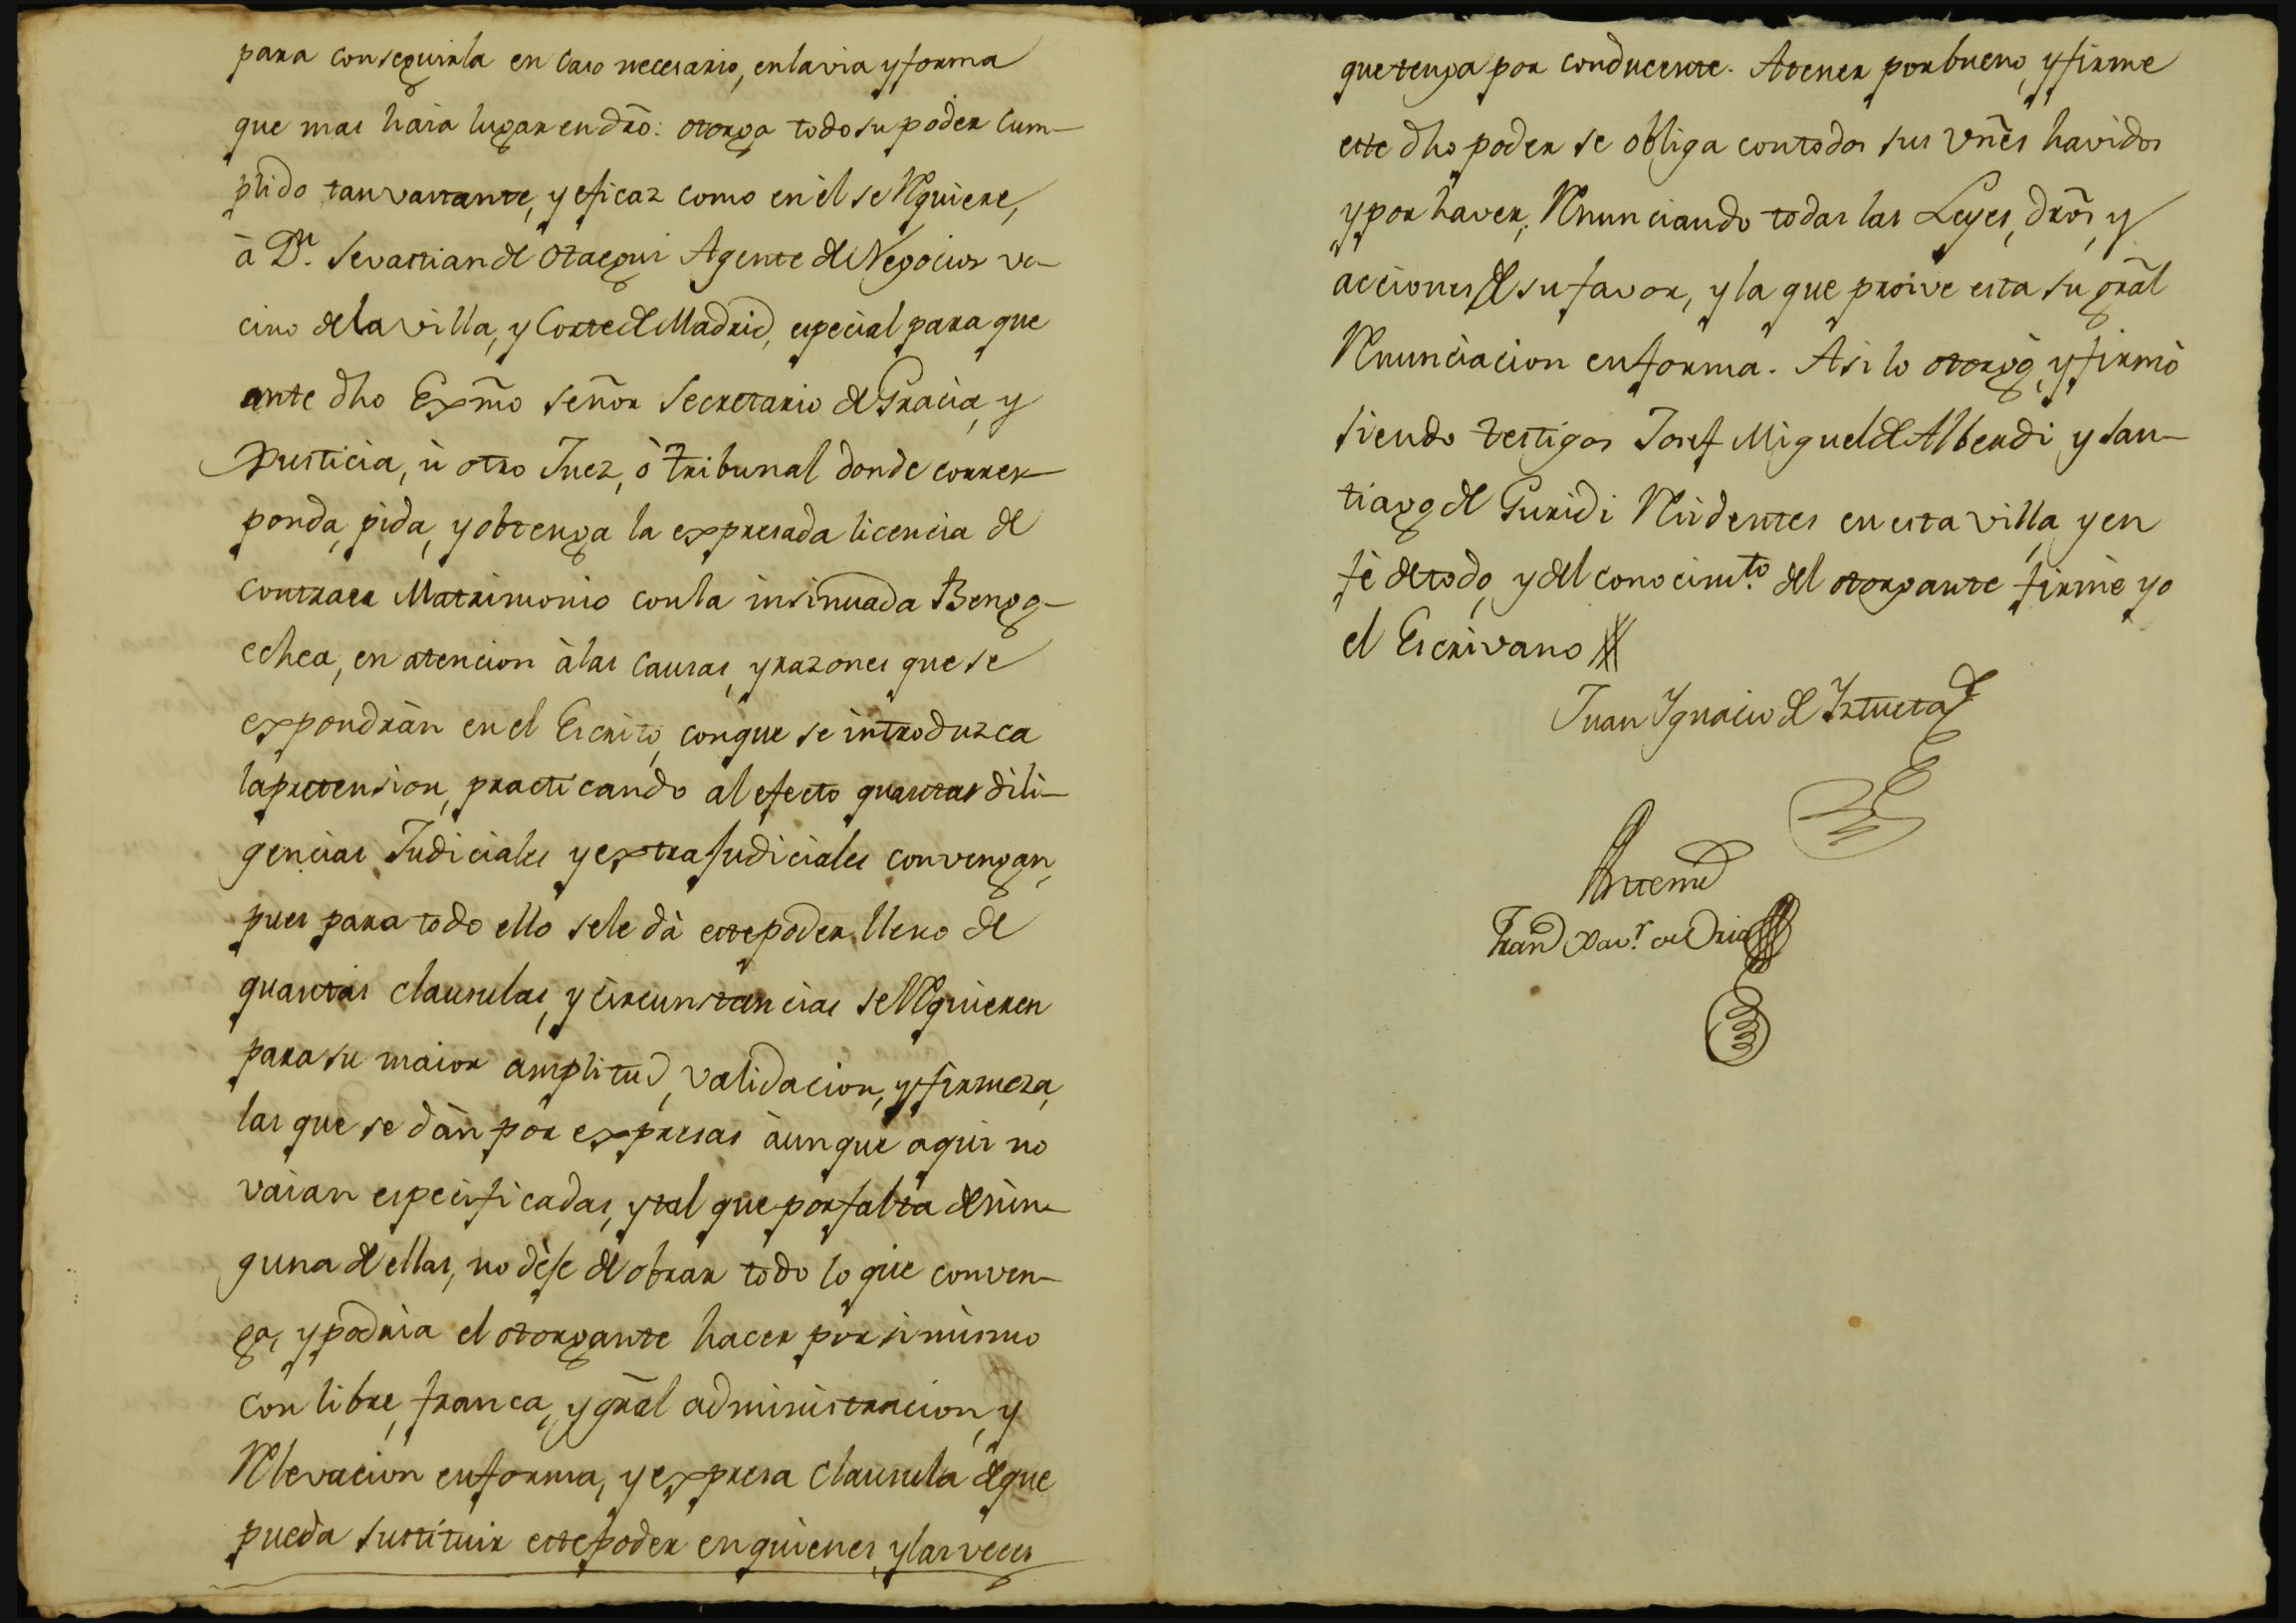 para conseguirla en caso necesario, en la via y forma
que mas haia lugar en dr̃o: otorga todo su poder cum-
plido tan vastante, y eficaz como en èl se Requiere,
à Dn. Sevastian de Otaegui Agente de Negocios ve-
cino de la villa, y Corte de Madrid, especial para que
ante dho Exm̃o señor Secretario de Gracia, y
Justicia, ù otro Juez, ò tribunal donde corres-
ponda, pida, y obtenga la expresada licencia de
contraer Matrimonio con la insinuada Bengo-
echea, en atencion à las causas, y razones que se
expondràn en el Escrito, conque se introduzca
la pretension, practicando al efecto quantas dili-
gencias Judiciales y extrajudiciales convengan,
pues para todo ello se le dà este poder lleno de
quantas clausulas, y circunstancias se Requieren
para su maior amplitud, validacion, y firmeza,
las que se dàn por expresas àunque aqui no
vaian especificadas, y tal que por falta de nin-
guna de ellas, no dèje de obrar todo lo que conven-
ga, y podria el otorgante hacer por si mismo
con libre, franca, y gr̃al administracion, y
Relevacion en forma, y expresa clausula de que
pueda sustituir este poder en quienes, y las veces
que tenga por conducente. A tener por bueno, y firme
este dho poder se obliga con todos sus vñes havidos
y por haver, Renunciando todas las Leyes, dr̃os, y
acciones de su favor, y la que proive esta su gr̃al
Renunciacion en forma. Asi lo otorgò, y firmò
siendo testigos Josef Miguel de Alberdi y San-
tiago de Guridi Residentes en esta villa, y en
fè de todo, y del conocimto. del otorgante firmè yo
el Escrivano
Juan Ygnacio de Yztueta
Antemi
Franco Xavr. de Oria